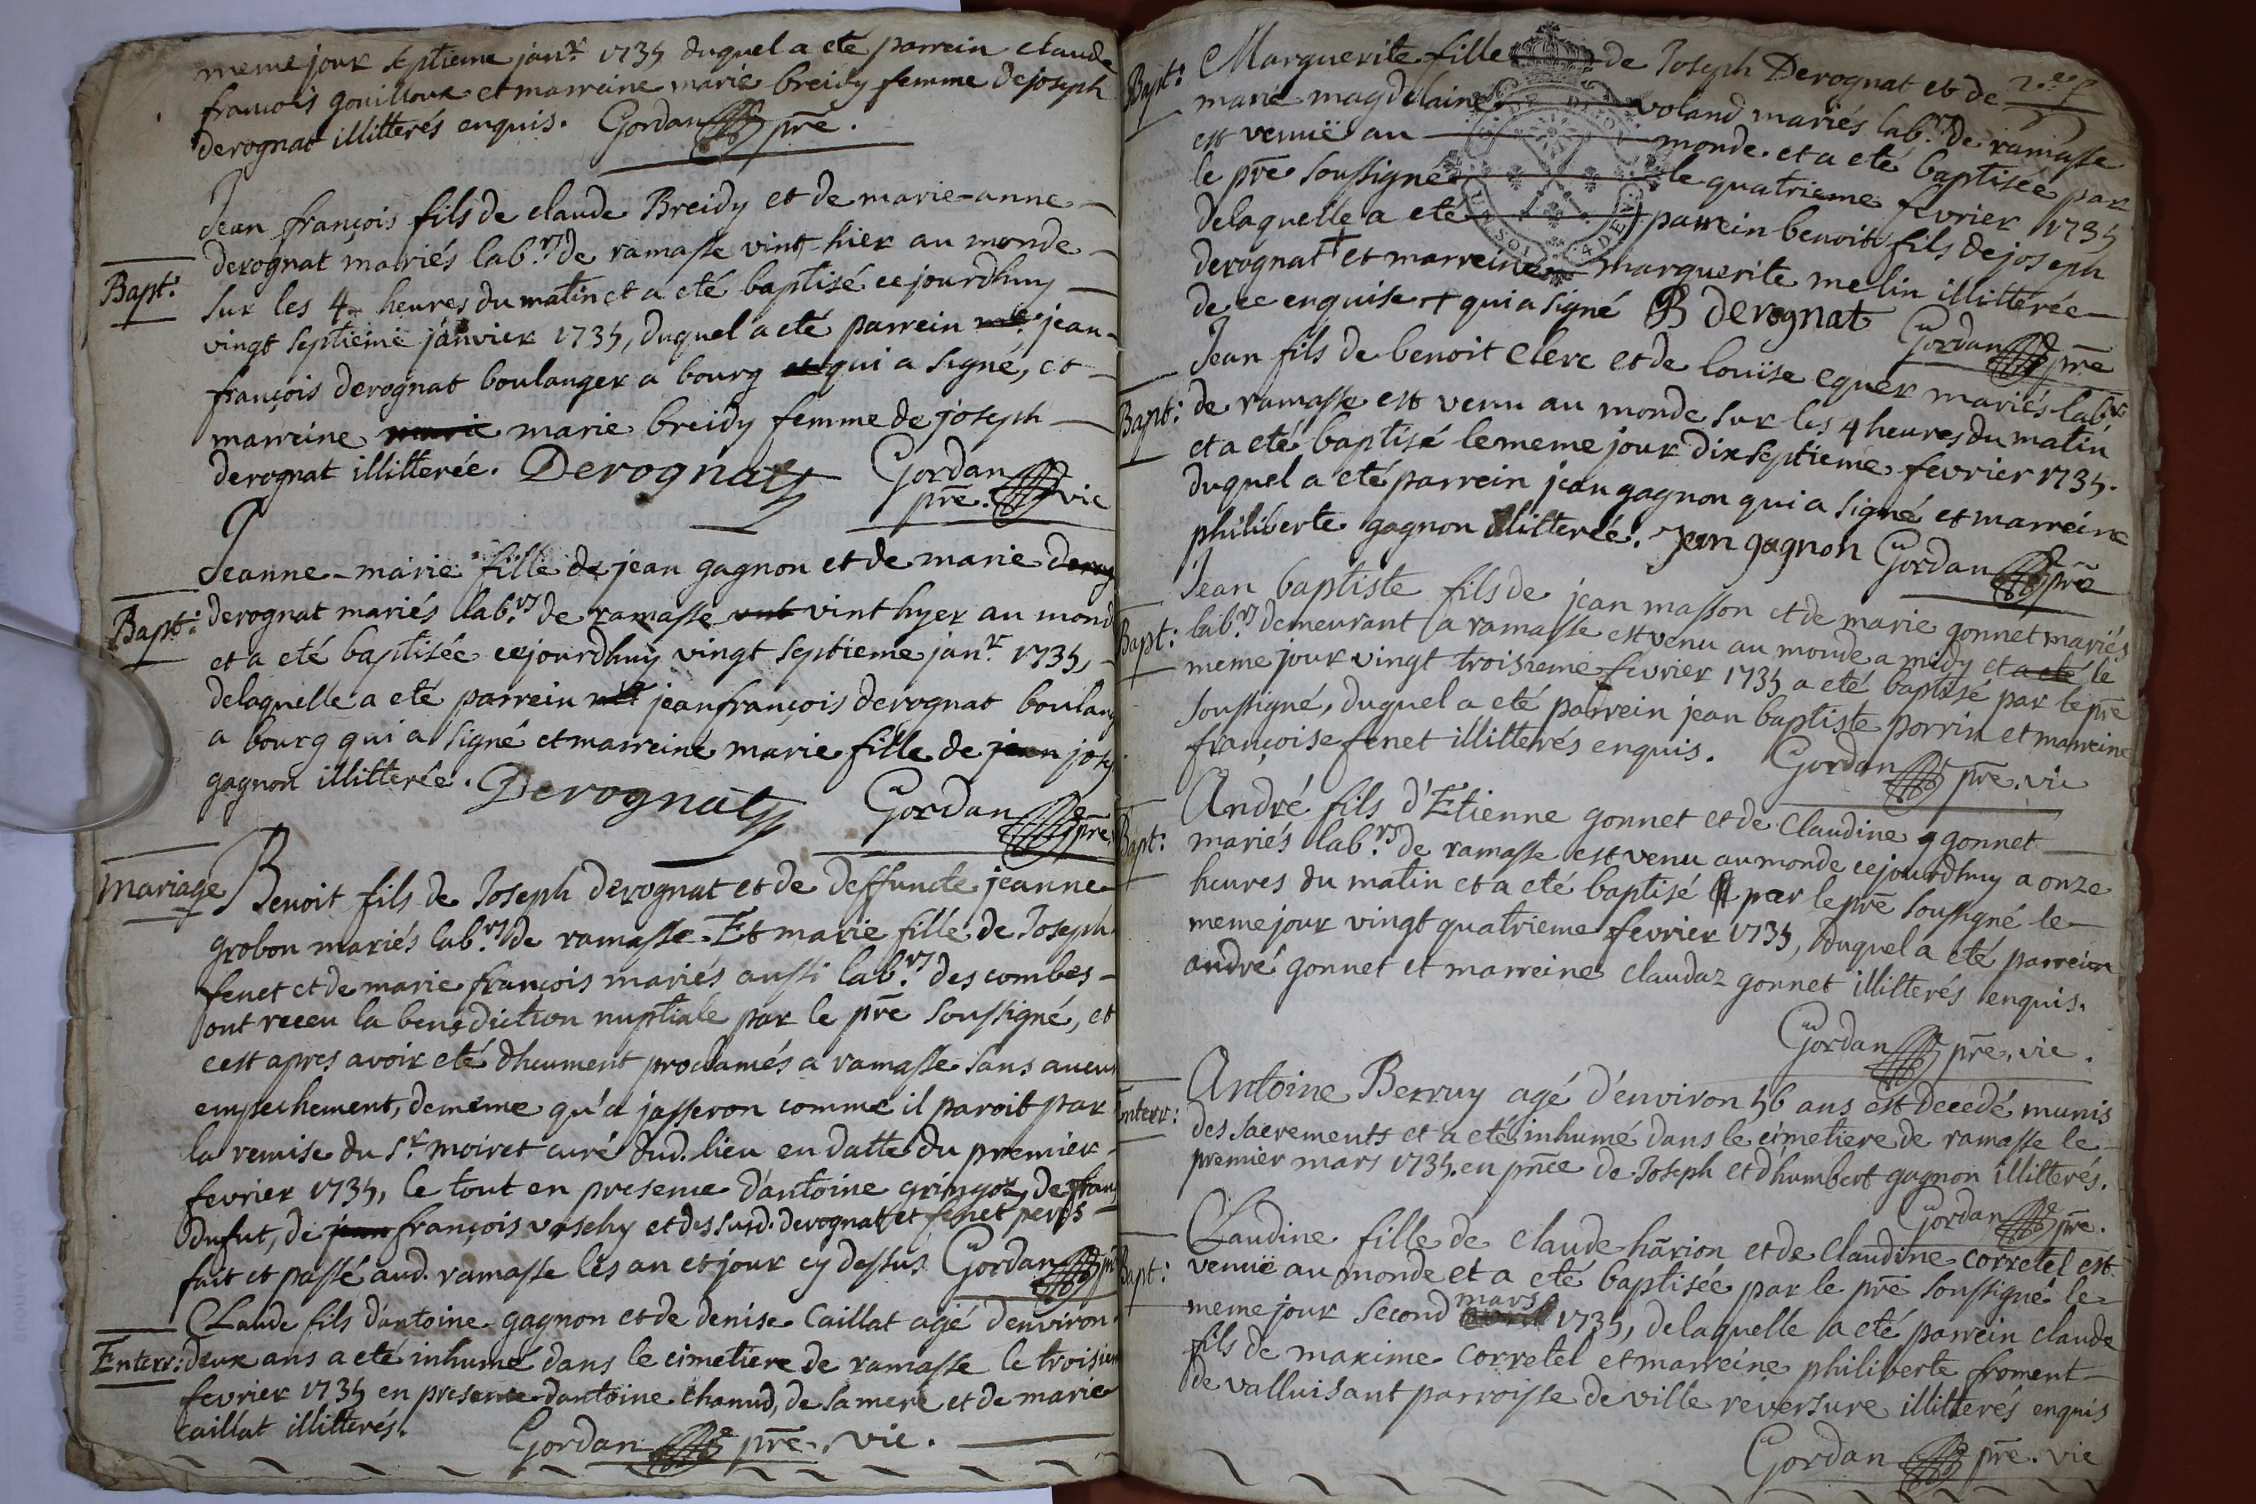 meme jour septieme janr. 1735 duquel a eté parrein claude
françois gouilloux et marreine marie breidy femme de joseph
derognat illitterés enquis. Gordan pre.
Jean françois fils de claude Breidy et de marie-anne
derognat mariés labrs. de ramasse vint hier au monde
Bapt:
sur les 4 heures du matin et a eté baptisé cejourdhuy
vingt septieme janvier 1735, duquel a eté parrein jean
françois derognat boulanger a bourg et qui a signé, et
marreine marie marie breidy femme de joseph
derognat illitterée. Derognat Gordan
pre. vic
Jeanne-marie fille de jean gagnon et de marie derog
Bapt:
derognat mariés labrs. de ramasse vint hyer au mond
et a eté baptisée cejourdhuy vingt septieme janr. 1735,
delaquelle a eté parrein jean françois derognat boulang
a bourg qui a signé et marreine marie fille de jean jose
gagnon illitterée. Derognat Gordan
pre.
mariage
Benoit fils de Joseph derognat et de deffuncte jeanne
grobon mariés labrs. de ramasse. Et marie fille de Joseph
fenet et de marie françois mariés aussi labrs. des combes
ont receu la benediction nuptiale par le pre soussigné, et
cest apres avoir eté dheument proclamés a ramasse sans aucun
empechement, de meme qu'a jasseron comme il paroit par
la remise du Sr. moiret curé dud. lieu en datte du premier
fevrier 1735, le tout en presence d'antoine gringoz, de fran
dufut, de jean françois vaschy et des susd. derognat et fenet peres
fait et passé aud. ramasse les an et jour cy dessus. Gordan pre
Claude fils d'antoine gagnon et de denise Caillat agé denviron
Enterr:
deux ans a eté inhumé dans le cimetiere de ramasse le troisiem
fevrier 1735 en presence dantoine chanud, de sa mere et de marie
caillat illitterés.
Gordan pre. vic.
2e. f
Bapt:
Marguerite fille de Joseph Derognat et de
marie magdelaine voland mariés labrs. de ramasse
est venuë au monde et a eté baptisée par
le pre soussigné le quatrieme fevrier 1735
delaquelle a eté parrein benoit fils de joseph
derognat + et marreine marguerite melin illitterée
de ce enquise + qui a signé B derognat
Gordan pre
Jean fils de benoit Clerc et de louïse equer mariés labrs.
Bapt:
de ramasse est venu au monde sur les 4 heures du matin
et a eté baptisé le meme jour dix septieme fevrier 1735.
duquel a eté parrein jean gagnon qui a signé et marreine
philiberte gagnon illitterée. Jean gagnon Gordan pre
Jean baptiste fils de jean masson et de marie gonnet mariés
Bapt:
labrs. demeurant a ramasse est venu au monde a midy et a eté le
meme jour vingt troisieme fevrier 1735 a eté baptisé par le pre
soussigné, duquel a eté parrein jean baptiste porrin et marreine
françoise fenet illitterés enquis. Gordan pre. vic
André fils d'Etienne gonnet et de Claudine gonnet
Bapt:
mariés labrs. de ramasse est venu au monde cejourdhuy a onze
heures du matin et a eté baptisé par le pre soussigné le
meme jour vingt quatrieme fevrier 1735, duquel a eté parrein
andré gonnet et marreine claudaz gonnet illitterés enquis.
Gordan pre. vic.
Antoine Berruy agé d'environ 56 ans est decedé munis
Enterr:
des sacrements et a eté inhumé dans le cimetiere de ramasse le
premier mars 1735. en pnce de Joseph et d'humbert gagnon illitterés.
Gordan pre.
Claudine fille de claude harion et de Claudine corretel est
Bapt:
venuë au monde et a eté baptisée par le pre soussigné le
meme jour second mars 1735, delaquelle a eté parrein claude
fils de maxime corretel et marreine philiberte froment
de valluisant parroisse de ville reversure illitterés enquis
Gordan pre. vic